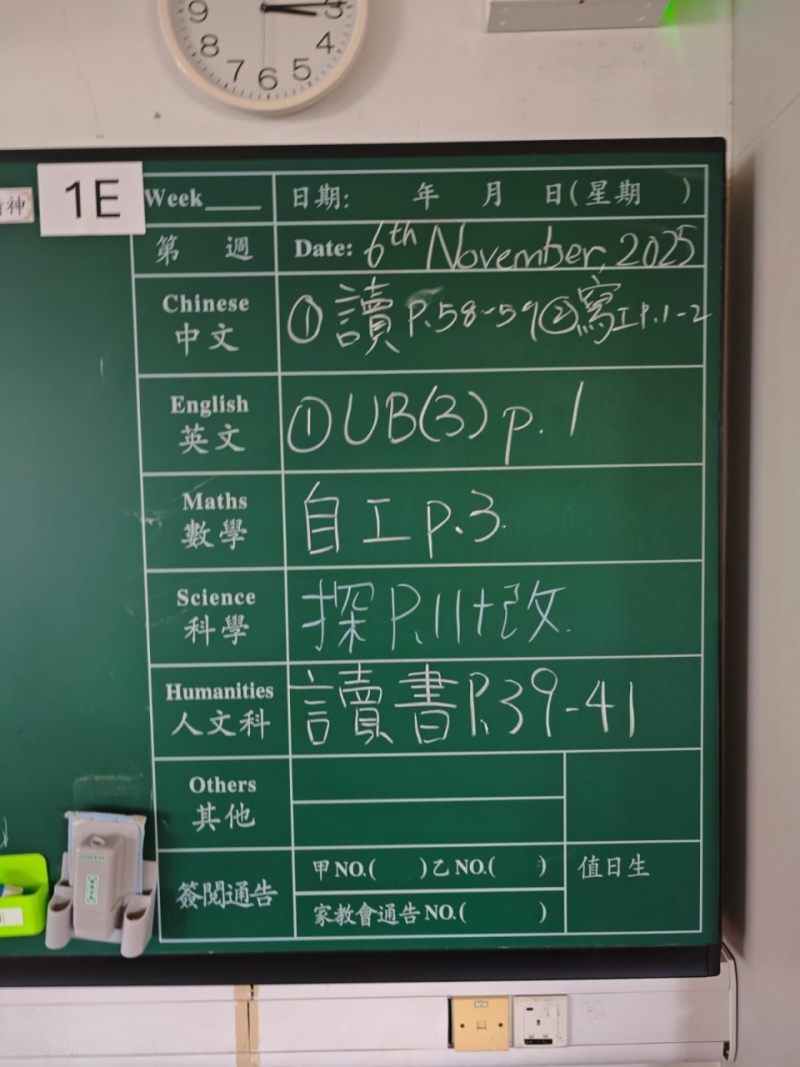 9 3
8 4
7 6 5
神
1E
Week____ 日期: 年 月 日(星期 )
第 週 Date: 6th November, 2025
Chinese
中文
①讀 P.58-59 ②寫工P.1-2
English
英文
① UB(3) p. 1
Maths
數學
自工 P.3.
Science
科學
探 P.11+改.
Humanities
人文科
讀書P.39-41
Others
其他
簽閱通告
甲NO.( )乙NO.( )
家教會通告NO.( )
值日生